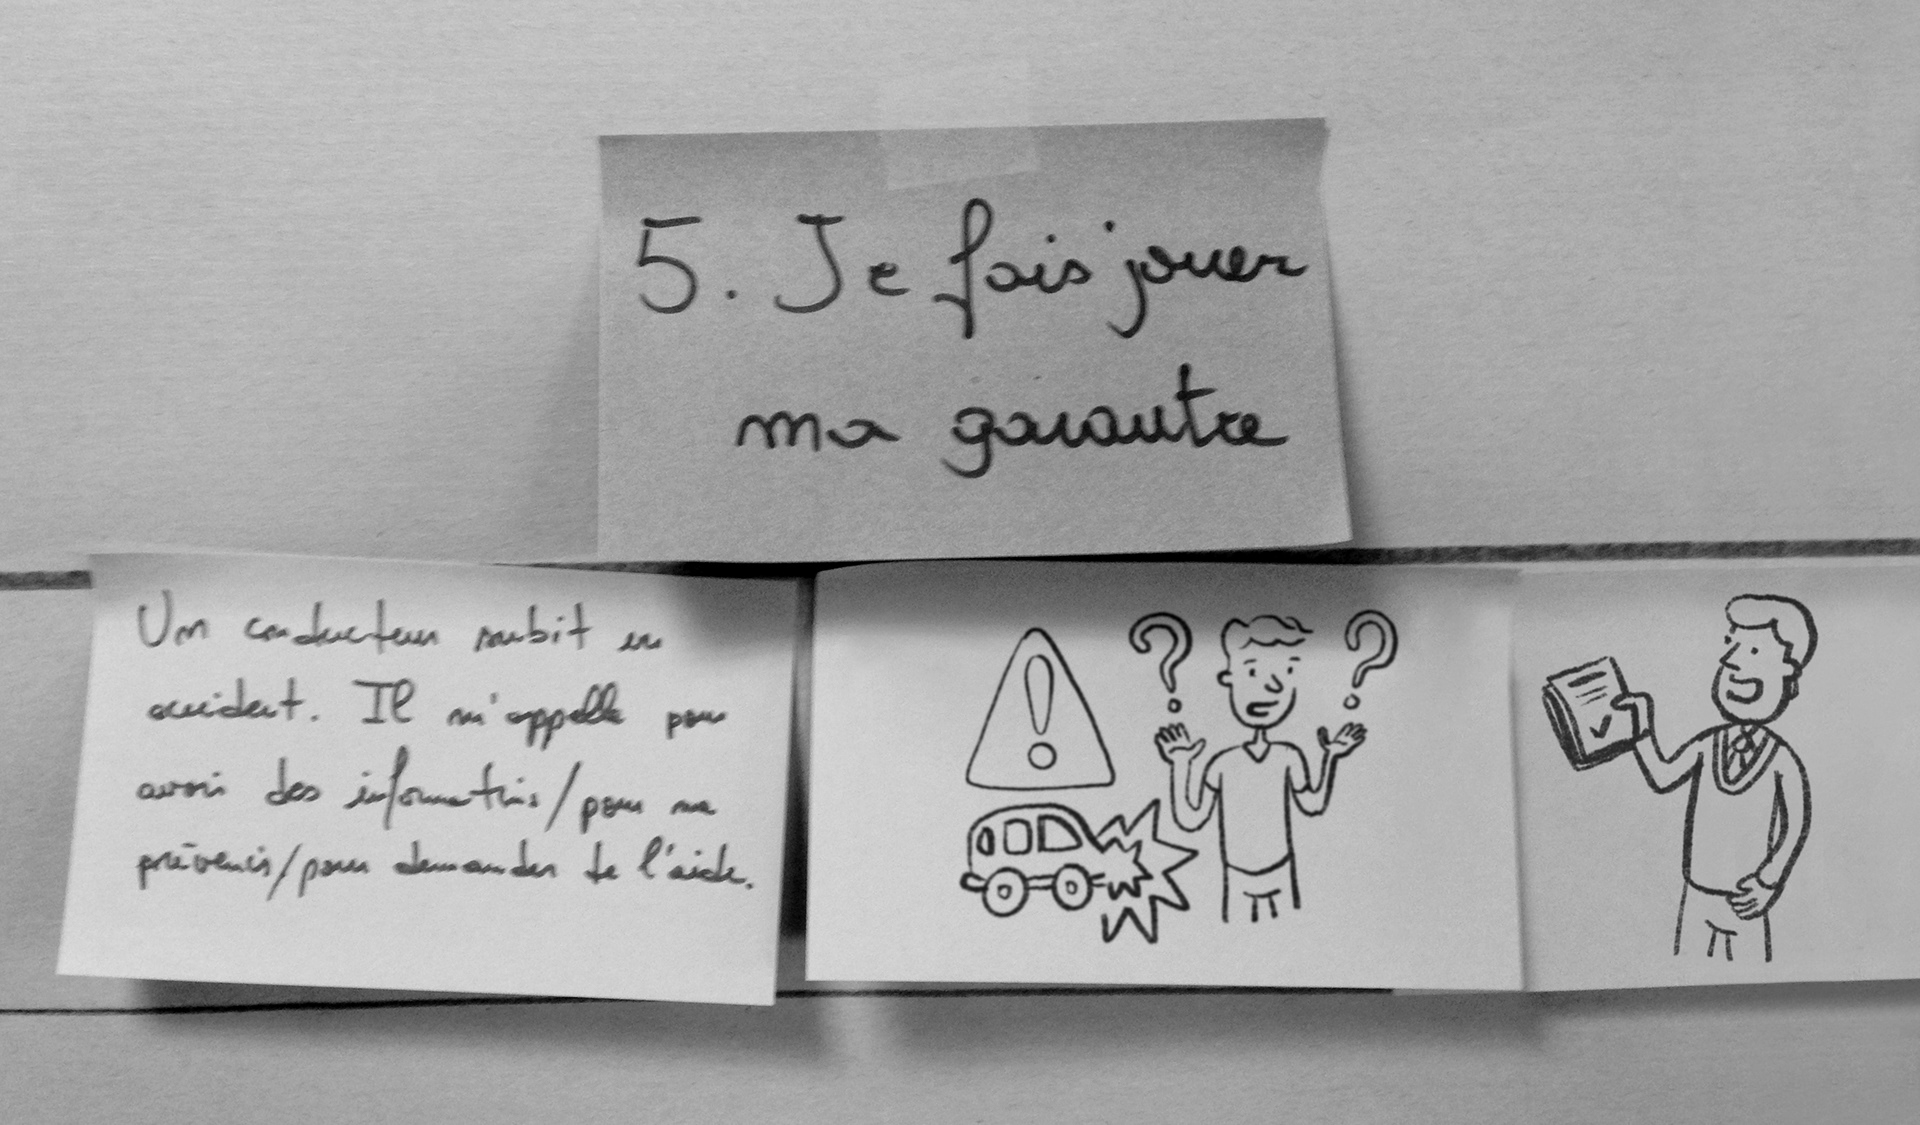 5. Je fais jouer
ma garantie
Un conducteur subit un
accident. Il m'appelle pour
avoir des informations/pour me
prévenir/pour demander de l'aide.